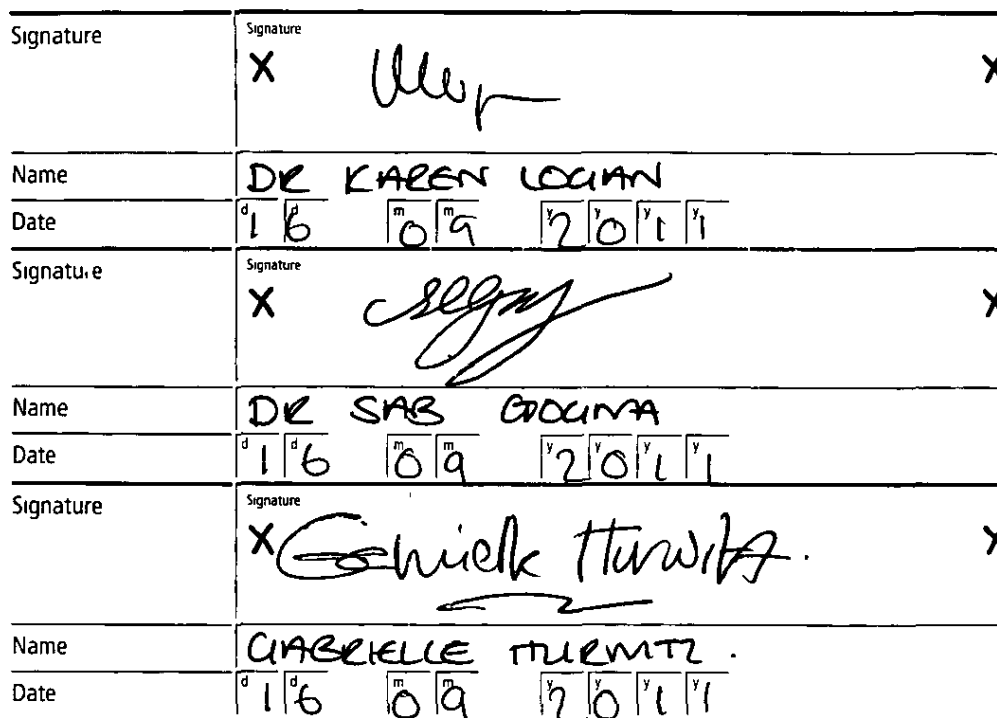 Signature Signature
X X
Name DR KAREN LOGAN
Date d1 d6 m0 m9 y2 y0 y1 y1
Signature Signature
X X
Name DR SAB
Date d1 d6 m0 m9 y2 y0 y1 y1
Signature Signature
X Gabrielle Hurwitz. X
Name GABRIELLE HURWITZ.
Date d1 d6 m0 m9 y2 y0 y1 y1